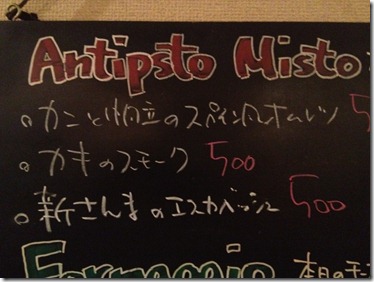 Antipsto Misto
。カニと帆立のスペイン風オムレツ 5
。カキのスモーク 500
。新さんまのエスカベッシュ 500
Formaggio 本日の